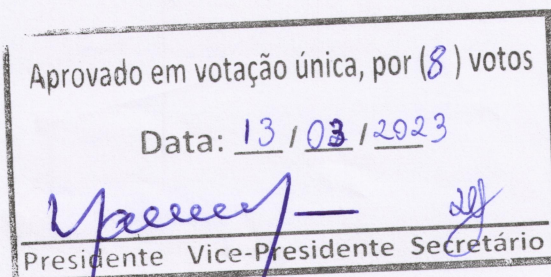 Aprovado em votação única, por (8) votos
Data: 13 / 03 / 2023
Presidente Vice-Presidente Secretário